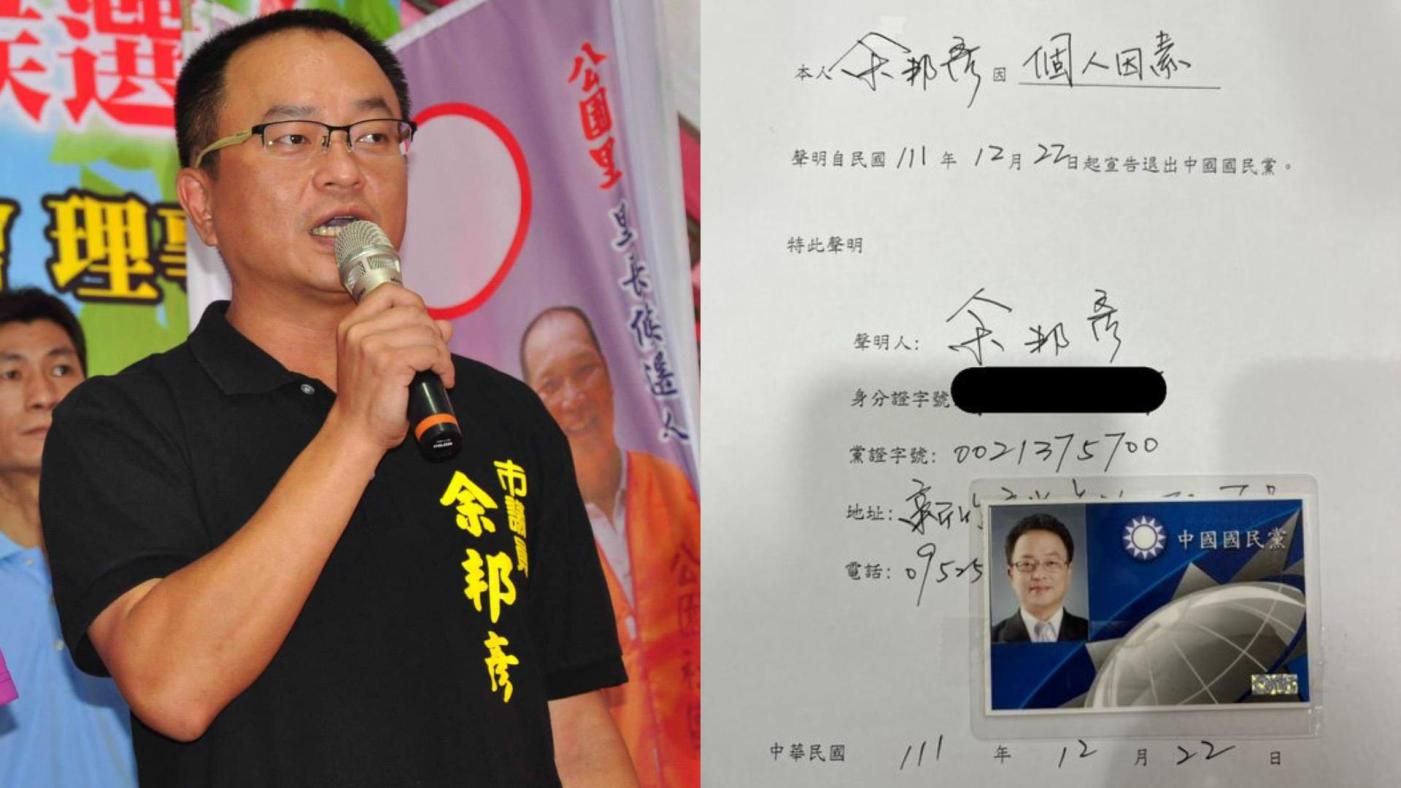 選
公園里
里長候選人
理事
市議員
余邦彥
本人 余邦彥 因 個人因素
聲明自民國 111 年 12月 22日起宣告退出中國國民黨。
特此聲明
聲明人: 余邦彥
身分證字號
黨證字號: 0021375700
地址:
電話: 09525
中國國民黨
中華民國 111 年 12 月 22 日